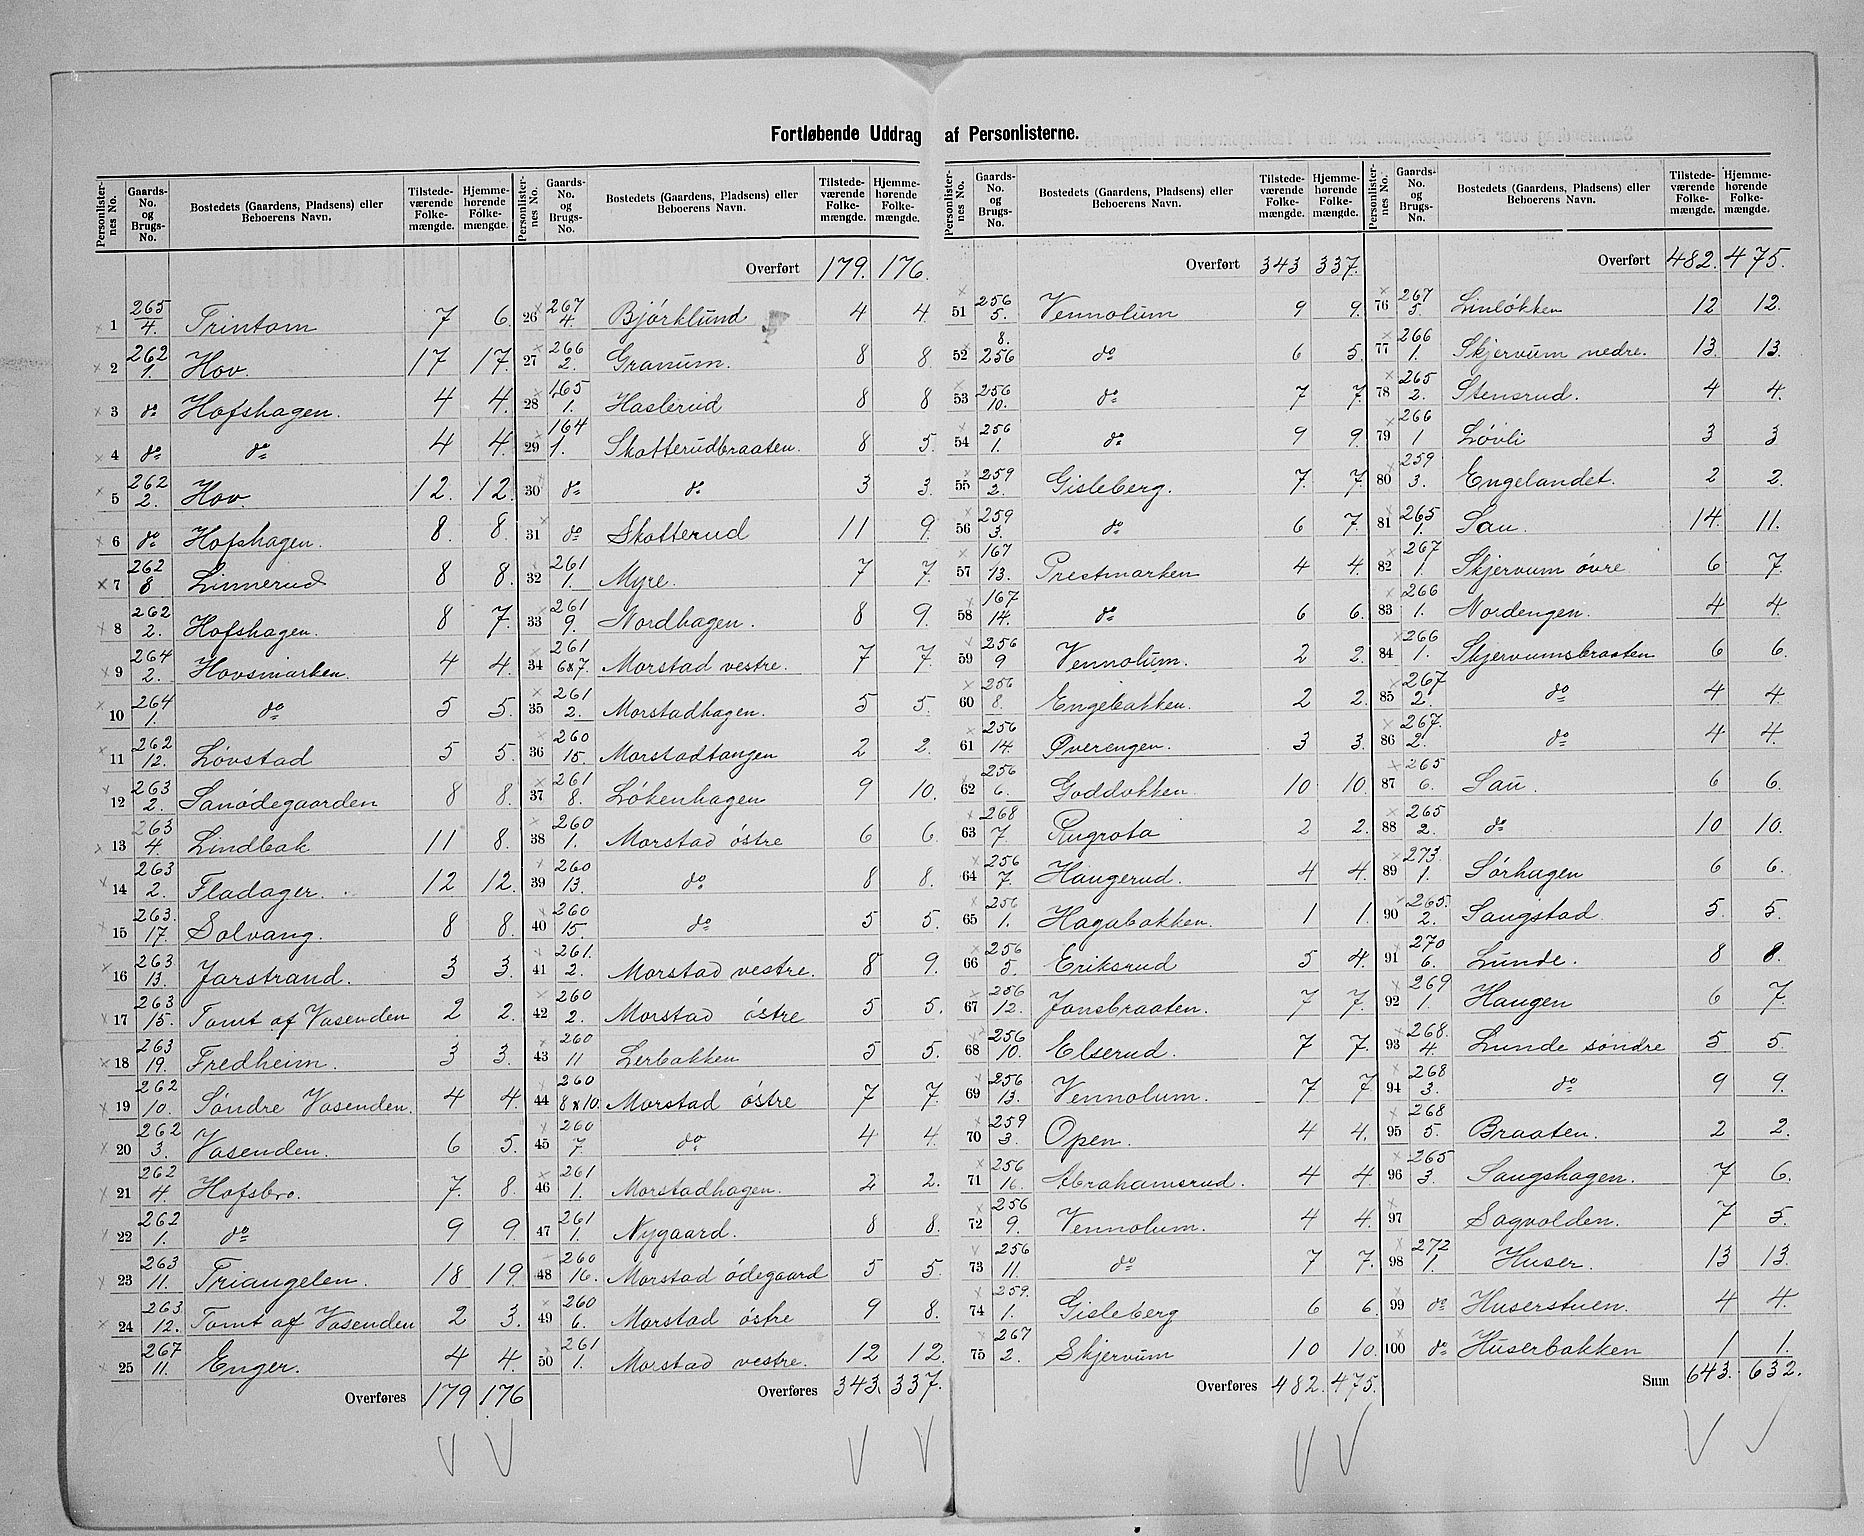 Fortløbende Uddrag af Personlisterne.
Personlisternes No. | Gaards-No. og Brugs-No. | Bostedets (Gaardens, Pladsens) eller Beboerens Navn. | Tilstedeværende Folkemængde. | Hjemmehørende Folkemængde.
1 | 265/4. | Trintom | 7 | 6.
2 | 262/1. | Hov. | 17 | 17.
3 | do | Hofshagen. | 4 | 4.
4 | do | do | 4 | 4.
5 | 262/2. | Hov. | 12. | 12.
6 | do | Hofshagen. | 8. | 8.
7 | 262/8 | Linnerud | 8 | 8.
8 | 262/2. | Hofshagen. | 8 | 7.
9 | 264/2. | Hovsmarken. | 4 | 4.
10 | 264/1. | do | 5 | 5.
11 | 262/12. | Løvstad | 5 | 5.
12 | 263/2. | Sanødegaarden | 8 | 8.
13 | 263/4 | Lindbak | 11 | 8.
14 | 263/2. | Fladager. | 12 | 12.
15 | 263./17. | Solvang. | 8 | 8.
16 | 263/13. | Jarstrand. | 3 | 3.
17 | 263/15. | Tomt af Vasenden | 2 | 2.
18 | 263/19. | Fredheim. | 3 | 3.
19 | 262/10. | Søndre Vasenden. | 4 | 4.
20 | 262/3. | Vasenden. | 6 | 5.
21 | 262/4. | Hofsbro. | 7. | 8.
22 | 262/1. | do | 9 | 9.
23 | 263/11. | Triangelen. | 18 | 19
24 | 263./12. | Tomt af Vasenden | 2 | 3.
25 | 267/11. | Enger. | 4 | 4.
Overføres 179 176
Personlisternes No. | Gaards-No. og Brugs-No. | Bostedets (Gaardens, Pladsens) eller Beboerens Navn. | Tilstedeværende Folkemængde. | Hjemmehørende Folkemængde.
Overført 179. 176.
26 | 267/4. | Bjørklund | 4 | 4
27 | 266/2. | Granum. | 8 | 8.
28 | 165/1. | Haslerud | 8 | 8
29 | 164/1. | Skotterudbraaten. | 8 | 5.
30 | do | do | 3 | 3.
31 | do | Skotterud | 11 | 9.
32 | 261/1. | Myre. | 7 | 7.
33 | 261/9. | Nordhagen. | 8 | 9.
34 | 261/6&7. | Morstad vestre. | 7 | 7.
35 | 261/2. | Morstadhagen. | 5 | 5.
36 | 260/15. | Morstadtangen | 2 | 2.
37 | 261/8. | Løkenhagen | 9 | 10.
38 | 260/1. | Morstad østre | 6 | 6
39 | 260/13. | do | 8 | 8.
40 | 260/15. | do | 5 | 5.
41 | 261./2. | Morstad vestre. | 8 | 9.
42 | 260/2. | Morstad østre | 5 | 5.
43 | 260/11 | Lerbakken | 5 | 5.
44 | 260/8&10. | Morstad østre | 7 | 7.
45 | 260/7. | do | 4 | 4.
46 | 261/1. | Morstadhagen. | 2 | 2.
47 | 261/1. | Nygaard. | 8 | 8.
48 | 260/16. | Morstad ødegaard | 5 | 5.
49 | 260/6. | Morstad østre | 9 | 8.
50 | 261/1. | Morstad vestre. | 12 | 12.
Overføres 343. 337.
Personlisternes No. | Gaards-No. og Brugs-No. | Bostedets (Gaardens, Pladsens) eller Beboerens Navn. | Tilstedeværende Folkemængde. | Hjemmehørende Folkemængde.
Overført 343 337.
51 | 256/5. | Vennolum | 9 | 9.
52 | 8./256 | do | 6 | 5.
53 | 256/10. | do | 7 | 7.
54 | 256/1. | do | 9 | 9.
55 | 259/2. | Gisleberg. | 7. | 7.
56 | 259/3. | do | 6 | 7.
57 | 167/13. | Prestmarken | 4 | 4.
58 | 167/14. | do | 6 | 6.
59 | 256/9 | Vennolum. | 2 | 2.
60 | 256/8. | Engebakken. | 2 | 2.
61 | 256/14. | Øverengen. | 3 | 3.
62 | 256/6. | Goddokken. | 10 | 10.
63 | 268/7. | 2 | 2.
64 | 256/7. | Haugerud. | 4 | 4.
65 | 256/1. | Hagabakken. | 1 | 1.
66 | 256/5 | Eriksrud | 5 | 4.
67 | 256/12. | Jonsbraaten. | 7 | 7.
68 | 256/10. | Elserud. | 7 | 7.
69 | 256/13. | Vennolum. | 7 | 7.
70 | 259/3. | Open. | 4 | 4.
71 | 256/16. | Abrahamsrud. | 4 | 4.
72 | 256/9. | Vennolum. | 4 | 4.
73 | 256/11. | do | 7 | 7.
74 | 259./1. | Gisleberg | 6 | 6
75 | 267/2. | Skjervum | 10 | 10.
Overføres 482. 475.
Personlisternes No. | Gaards-No. og Brugs-No. | Bostedets (Gaardens, Pladsens) eller Beboerens Navn. | Tilstedeværende Folkemængde. | Hjemmehørende Folkemængde.
Overført 482. 475.
76 | 267/5 | Linløkken | 12 | 12.
77 | 266/1. | Skjervum nedre. | 13. | 13.
78 | 265/2. | Stensrud. | 4 | 4.
79 | 266/1 | Løvli | 3 | 3
80 | 259/3. | Engelandet. | 2 | 2.
81 | 265/1. | Sau. | 14. | 11.
82 | 267/1. | Skjervum øvre | 6 | 7.
83 | 266/1. | Nordengen. | 4 | 4
84 | 266/1. | Skjervumsbraaten | 6 | 6.
85 | 267/2. | do | 4 | 4.
86 | 267./2. | do | 4 | 4.
87 | 265/6. | Sau. | 6 | 6.
88 | 265/2. | do | 10 | 10.
89 | 273./1. | Sørhagen | 6 | 6.
90 | 265./2. | Saugstad. | 5. | 5.
91 | 270/6. | Lunde. | 8 | 8.
92 | 269/1 | Haugen | 6 | 7.
93 | 268./4. | Lunde søndre | 5 | 5.
94 | 268/3. | do | 9 | 9.
95 | 268/5. | Braaten. | 2 | 2.
96 | 265/3. | Saugshagen. | 7 | 6.
97 | Sagvolden. | 7 | 5.
98 | 272/1. | Huser. | 13 | 13.
99 | do | Huserstuen. | 4 | 4.
100 | do | Huserbakken | 1 | 1.
Sum 643. 632.